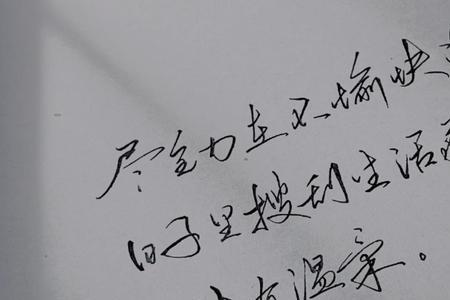 尽全力在不愉快
日子里搜刮生活
温寡。